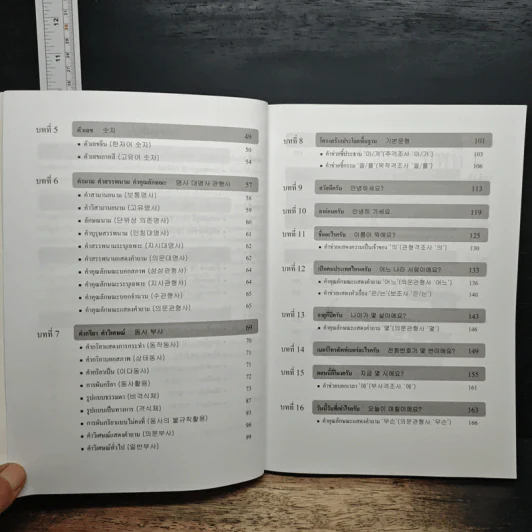 บทที่ 5 คำเลข 숫자 49
• คำเลขจีน (한자어 숫자) 50
• คำเลขเกาหลี (고유어 숫자) 54
บทที่ 6 คำนาม คำสรรพนาม คำคุณลักษณะ 명사 대명사 관형사 57
• คำสามานยนาม (보통명사) 58
• คำวิสามานยนาม (고유명사) 59
• ลักษณนาม (단위성 의존명사) 60
• คำบุรุษสรรพนาม (인칭대명사) 61
• คำสรรพนามระบุเฉพาะ (지시대명사) 62
• คำสรรพนามแสดงคำถาม (의문대명사)
• คำคุณลักษณะบอกสภาพ (성상관형사)
• คำคุณลักษณะระบุเฉพาะ (지시관형사)
• คำคุณลักษณะบอกจำนวน (수관형사)
• คำคุณลักษณะแสดงคำถาม (의문관형사)
บทที่ 7 คำกริยา คำวิเศษณ์ 동사 부사 69
• คำกริยาแสดงการกระทำ (동작동사) 70
• คำกริยาบอกสภาพ (상태동사) 71
• คำกริยาเป็น (이다동사)
• การผันกริยา (동사활용)
• รูปแบบธรรมดา (비격식체)
• รูปแบบเป็นทางการ (격식체)
• การผันกริยาแบบไม่คงที่ (동사의 불규칙활용)
• คำวิเศษณ์แสดงคำถาม (의문부사)
• คำวิเศษณ์ทั่วไป (일반부사)
บทที่ 8 โครงสร้างประโยคพื้นฐาน 기본문형 101
• คำช่วยชี้ประธาน '이/가'(주격조사 '이/가') 103
• คำช่วยชี้กรรม '을/를'(목적격조사 '을/를') 106
บทที่ 9 สวัสดีครับ 안녕하세요? 113
บทที่ 10 ลาก่อนครับ 안녕히 가세요 119
บทที่ 11 ชื่ออะไรครับ 이름이 뭐예요? 125
• คำช่วยแสดงความเป็นเจ้าของ '의'(관형격조사 '의') 130
บทที่ 12 เป็นคนประเทศไหนครับ 어느 나라 사람이에요? 133
• คำคุณลักษณะแสดงคำถาม '어느'(의문관형사 '어느') 136
• คำช่วยแสดงหัวเรื่อง '은/는'(보조사 '은/는') 140
บทที่ 13 อายุกี่ปีครับ 나이가 몇 살이에요? 143
• คำคุณลักษณะแสดงคำถาม '몇'(의문관형사 '몇') 147
บทที่ 14 เบอร์โทรศัพท์เบอร์อะไรครับ 전화번호가 몇 번이에요? 149
บทที่ 15 ตอนนี้กี่โมงครับ 지금 몇 시예요? 155
• คำช่วยบอกเวลา '에'(부사격조사 '에') 161
บทที่ 16 วันนี้วันที่เท่าไหร่ครับ 오늘이 며칠이에요? 163
• คำคุณลักษณะแสดงคำถาม '무슨'(의문관형사 '무슨') 166